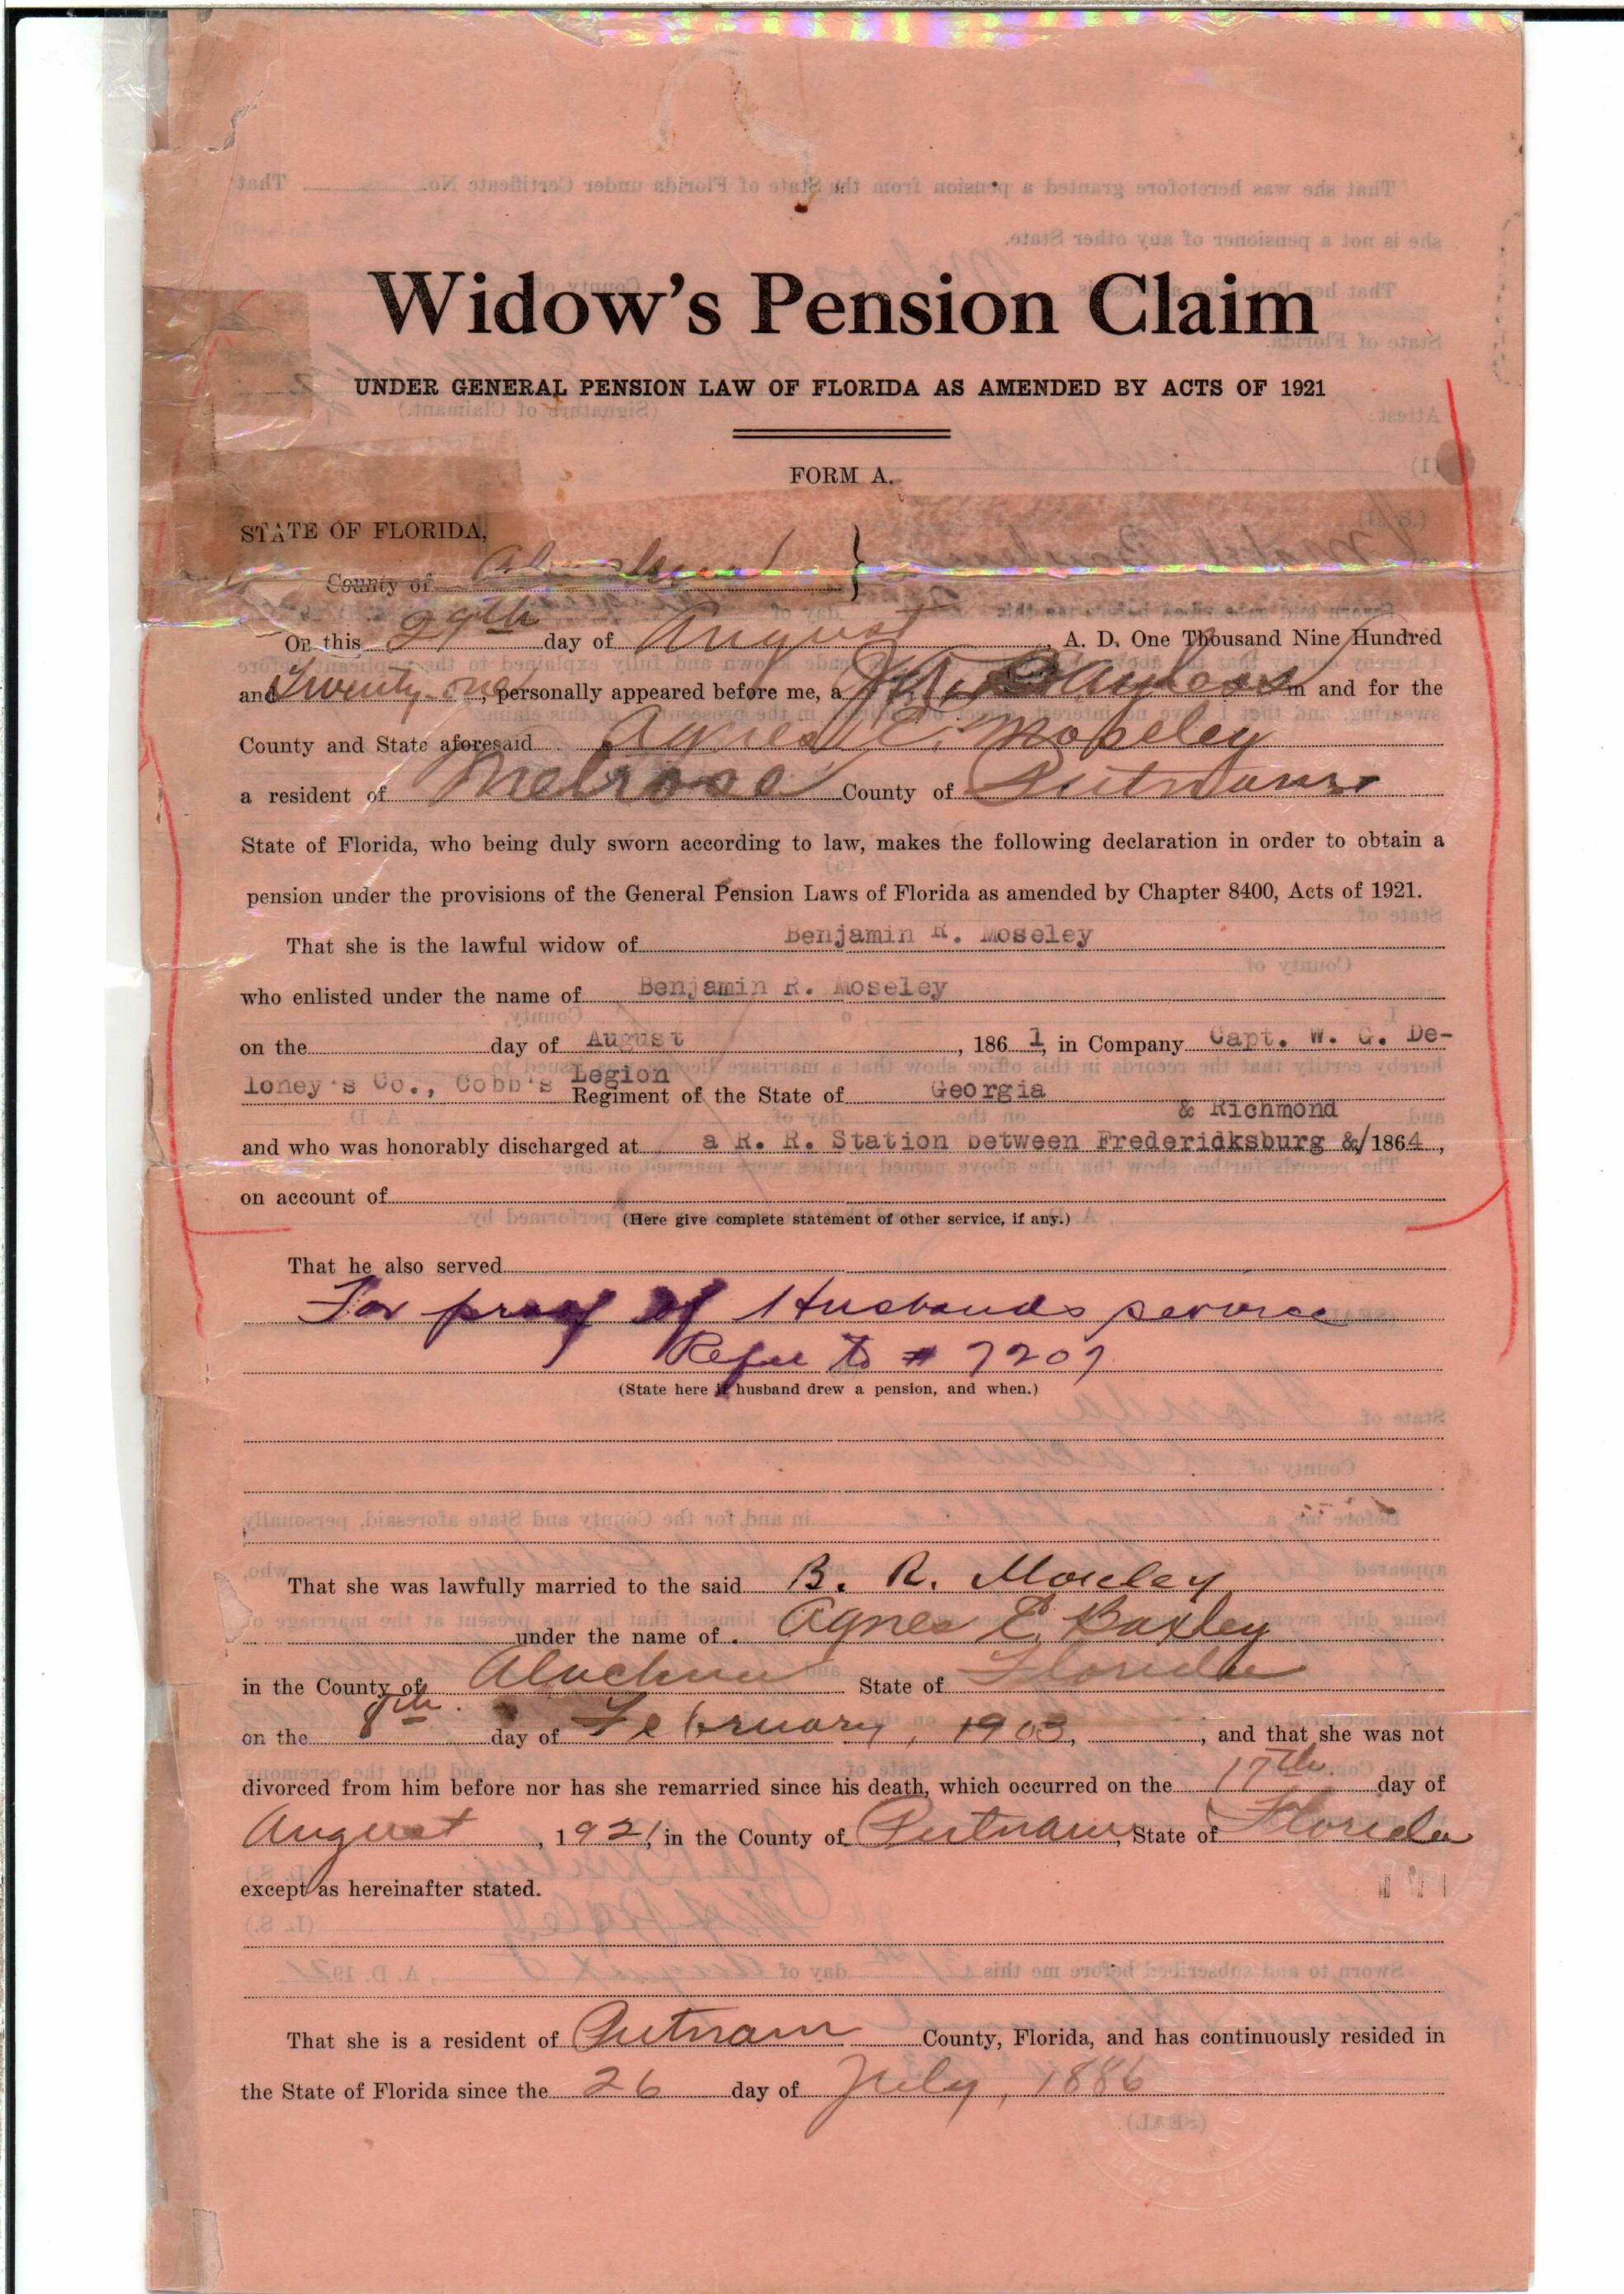 Widow's Pension Claim
UNDER GENERAL PENSION LAW OF FLORIDA AS AMENDED BY ACTS OF 1921
FORM A.
STATE OF FLORIDA,
County of
On this 29th day of August, A. D. One Thousand Nine Hundred
and Twenty-one, personally appeared before me, a in and for the
County and State aforesaid Agnes E. Moseley
a resident of Melrose County of Putnam
State of Florida, who being duly sworn according to law, makes the following declaration in order to obtain a
pension under the provisions of the General Pension Laws of Florida as amended by Chapter 8400, Acts of 1921.
That she is the lawful widow of Benjamin R. Moseley
who enlisted under the name of Benjamin R. Moseley
on the day of August, 1861, in Company Capt. W. G. De-
loney's Co., Cobb's Legion Regiment of the State of Georgia
& Richmond
and who was honorably discharged at a R. R. Station between Fredericksburg &/1864,
on account of
(Here give complete statement of other service, if any.)
That he also served
For proof of Husbands service
Refer to # 7207
(State here if husband drew a pension, and when.)
That she was lawfully married to the said B. R. Moseley
under the name of Agnes E. Baxley
in the County of Alachua State of Florida
on the 8th day of February, 1903, and that she was not
divorced from him before nor has she remarried since his death, which occurred on the 17th day of
August, 1921, in the County of Putnam, State of Florida
except as hereinafter stated.
That she is a resident of Putnam County, Florida, and has continuously resided in
the State of Florida since the 26 day of July, 1886